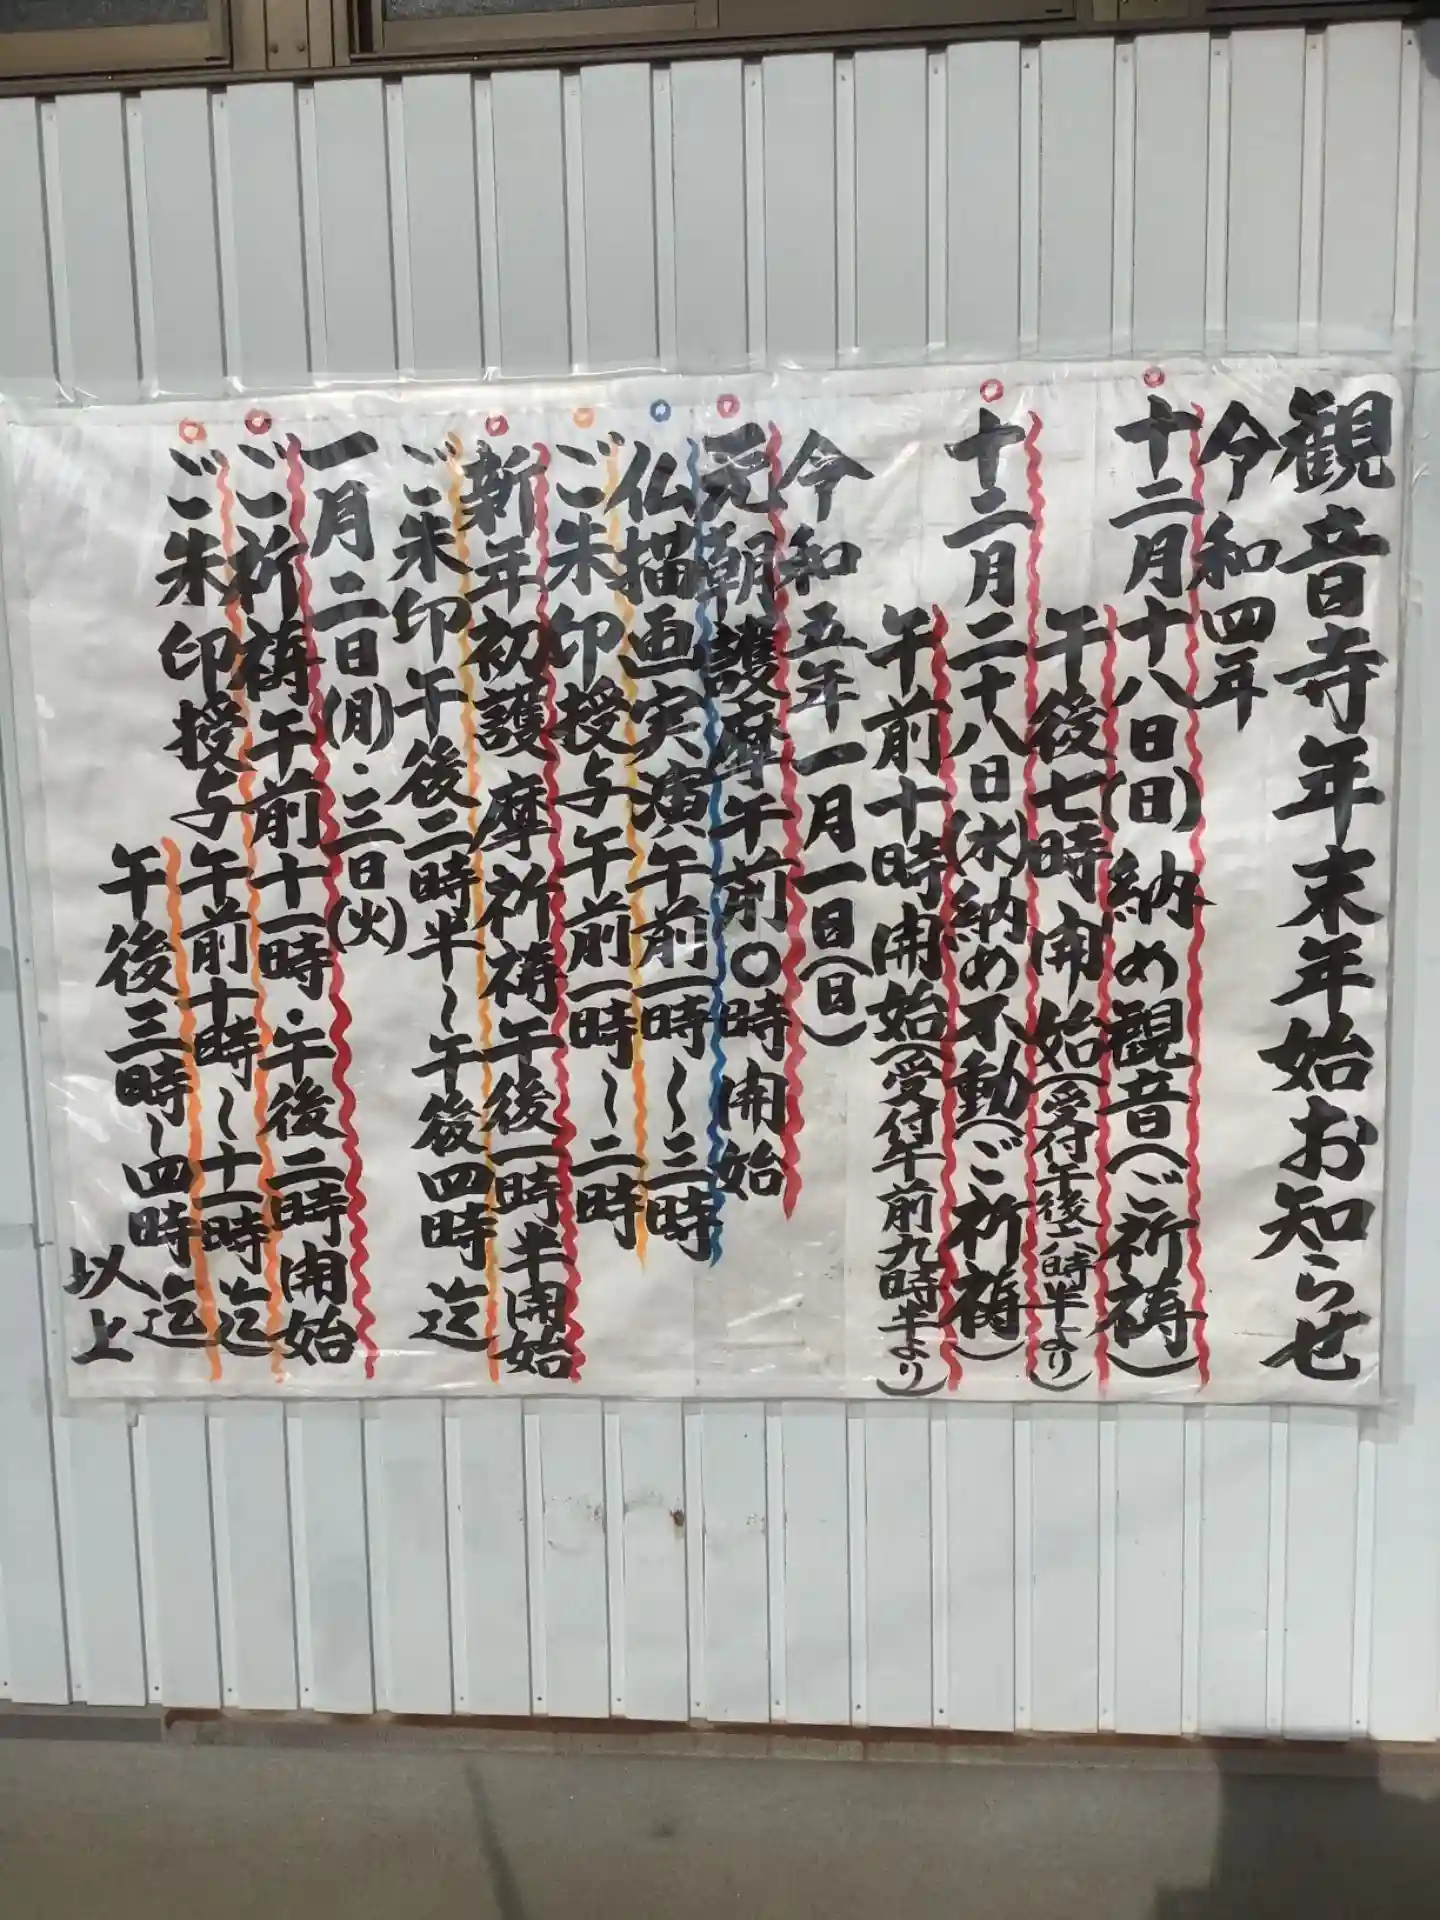 観音寺年末年始お知らせ
令和四年
十二月十八日(日)納め観音(ご祈祷)
午後七時開始(受付午後六時半より)
十二月二十八日(水)納め不動(ご祈祷)
午前十時開始(受付午前九時半より)
令和五年一月一日(日)
元朝護摩午前〇時開始
仏描画実演午前一時〜三時
ご朱印授与午前一時〜二時
新年初護摩祈祷午後一時半開始
ご朱印午後二時半〜午後四時迄
一月二日(月)・三日(火)
ご祈祷午前十一時・午後二時開始
ご朱印授与午前十時〜十一時迄
午後三時〜四時迄
以上